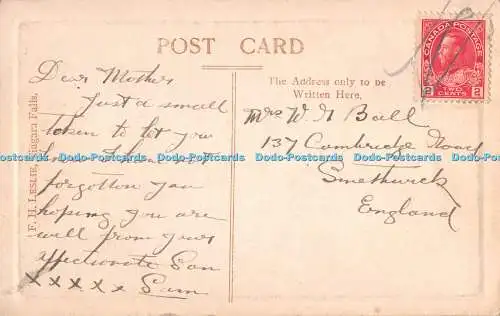 POST CARD
CANADA POSTAGE
2 TWO CENTS 2
Dear Mother
Just a small
token to let you
know I have not
forgotten you
hoping you are
well from your
affectionate Son
x x x x x Sam
The Address only to be
Written Here.
Mrs W. H Ball
137 Cambridge Road
Smethwick
England
F. H. LESLIE, Niagara Falls.
Da Postcards Da Postcards Da Postcards Da Postcards